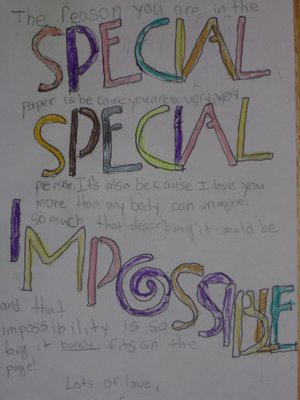 The reason you are in the
SPECIAL
paper is because you are a very very
SPECIAL
person. It's also because I love you
more than any body can imagine.
so much that describing it would be
IMPOSSIBLE
and that
impossibility is so
big it barely fits on the
page!
Lots of love,